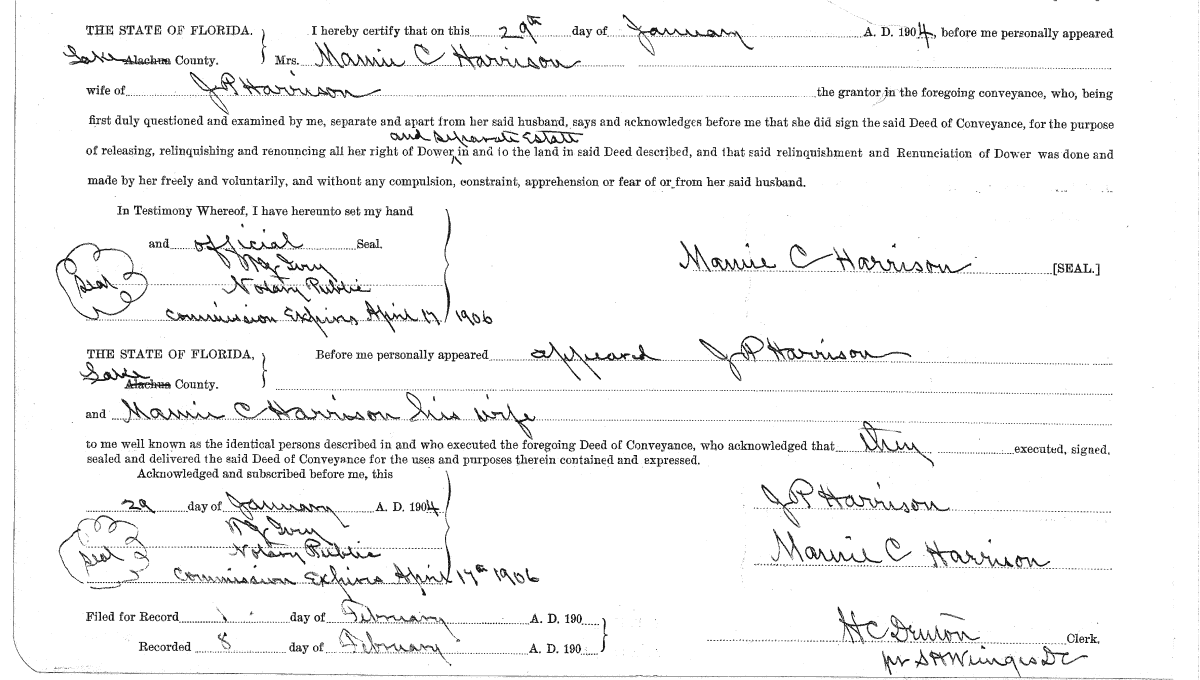 THE STATE OF FLORIDA. } I hereby certify that on this 29th day of January A. D. 1904, before me personally appeared
Lake Alachua County. Mrs. Mamie C Harrison
wife of J P Harrison the grantor in the foregoing conveyance, who, being
first duly questioned and examined by me, separate and apart from her said husband, says and acknowledges before me that she did sign the said Deed of Conveyance, for the purpose
and separate Estate
of releasing, relinquishing and renouncing all her right of Dower ^ in and to the land in said Deed described, and that said relinquishment and Renunciation of Dower was done and
made by her freely and voluntarily, and without any compulsion, constraint, apprehension or fear of or from her said husband.
In Testimony Whereof, I have hereunto set my hand
and official Seal.
Mamie C Harrison [SEAL.]
Seal Ivey
Notary Public
Commission Expires April 17 1906
THE STATE OF FLORIDA, } Before me personally appeared appeared J P Harrison
Lake Alachua County.
and Mamie C Harrison his wife
to me well known as the identical persons described in and who executed the foregoing Deed of Conveyance, who acknowledged that they executed, signed,
sealed and delivered the said Deed of Conveyance for the uses and purposes therein contained and expressed.
Acknowledged and subscribed before me, this
29 day of January A. D. 1904
J P Harrison
Ivey
Seal Notary Public
Mamie C Harrison
Commission Expires April 17th 1906
Filed for Record 1 day of February A. D. 190
H C Denton Clerk,
Recorded 8 day of February A. D. 190
pr S H Wienges DC